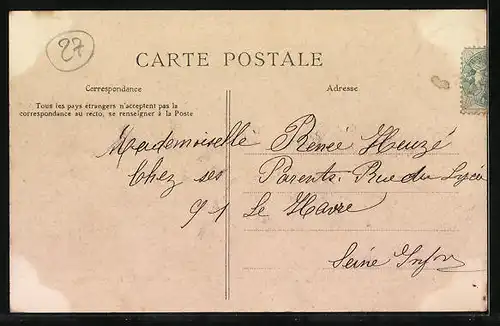 27
CARTE POSTALE
Correspondance
Adresse
Tous les pays étrangers n'acceptent pas la
correspondance au recto, se renseigner à la Poste
Mademoiselle Renée Heuzé
Chez ses Parents. Rue du Lycée
91 Le Havre
Seine Infre